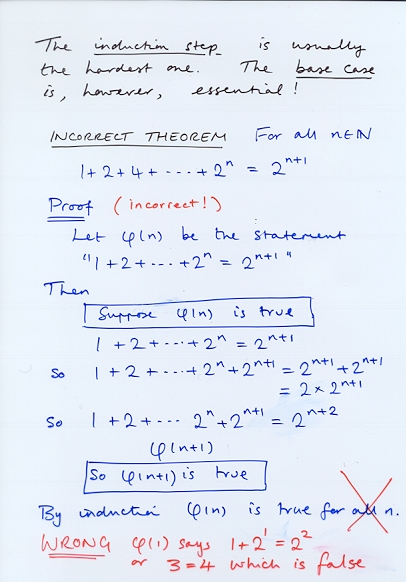 The induction step is usually
the hardest one. The base case
is, however, essential!
INCORRECT THEOREM For all n∈ℕ
1+2+4+ --- +2ⁿ = 2ⁿ⁺¹
Proof (incorrect!)
Let φ(n) be the statement
"1+2+---+2ⁿ = 2ⁿ⁺¹"
Then
Suppose φ(n) is true
1 +2+---+2ⁿ = 2ⁿ⁺¹
So 1+2+---+2ⁿ+2ⁿ⁺¹ = 2ⁿ⁺¹+2ⁿ⁺¹
= 2×2ⁿ⁺¹
So 1+2+--- 2ⁿ+2ⁿ⁺¹ = 2ⁿ⁺²
φ(n+1)
So φ(n+1) is true
By induction φ(n) is true for all n.
WRONG φ(1) says 1+2¹=2²
or 3=4 which is false